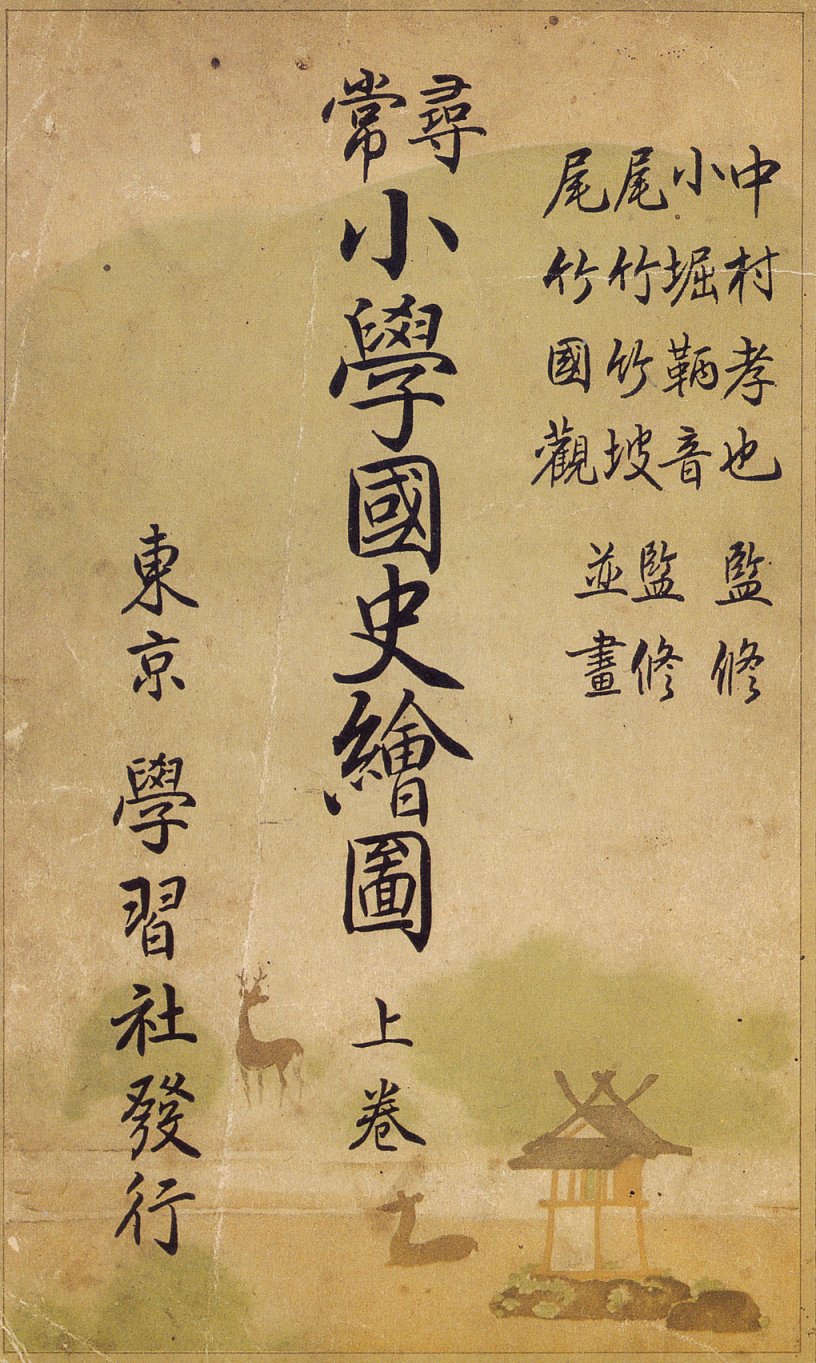 中村孝也 監修
小堀鞆音 監修
尾竹竹坡
尾竹國觀 並畫
尋常小學國史繪圖 上卷
東京 學習社發行